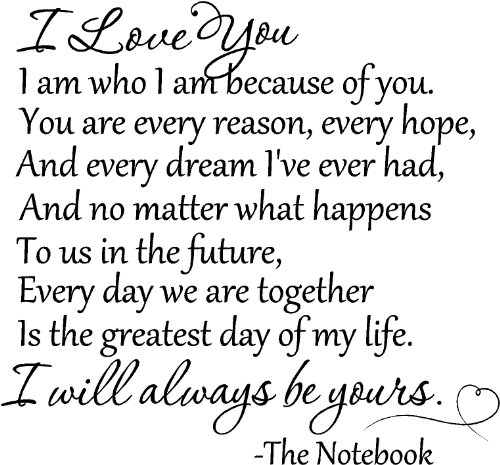 I Love You
I am who I am because of you.
You are every reason, every hope,
And every dream I've ever had,
And no matter what happens
To us in the future,
Every day we are together
Is the greatest day of my life.
I will always be yours.
-The Notebook